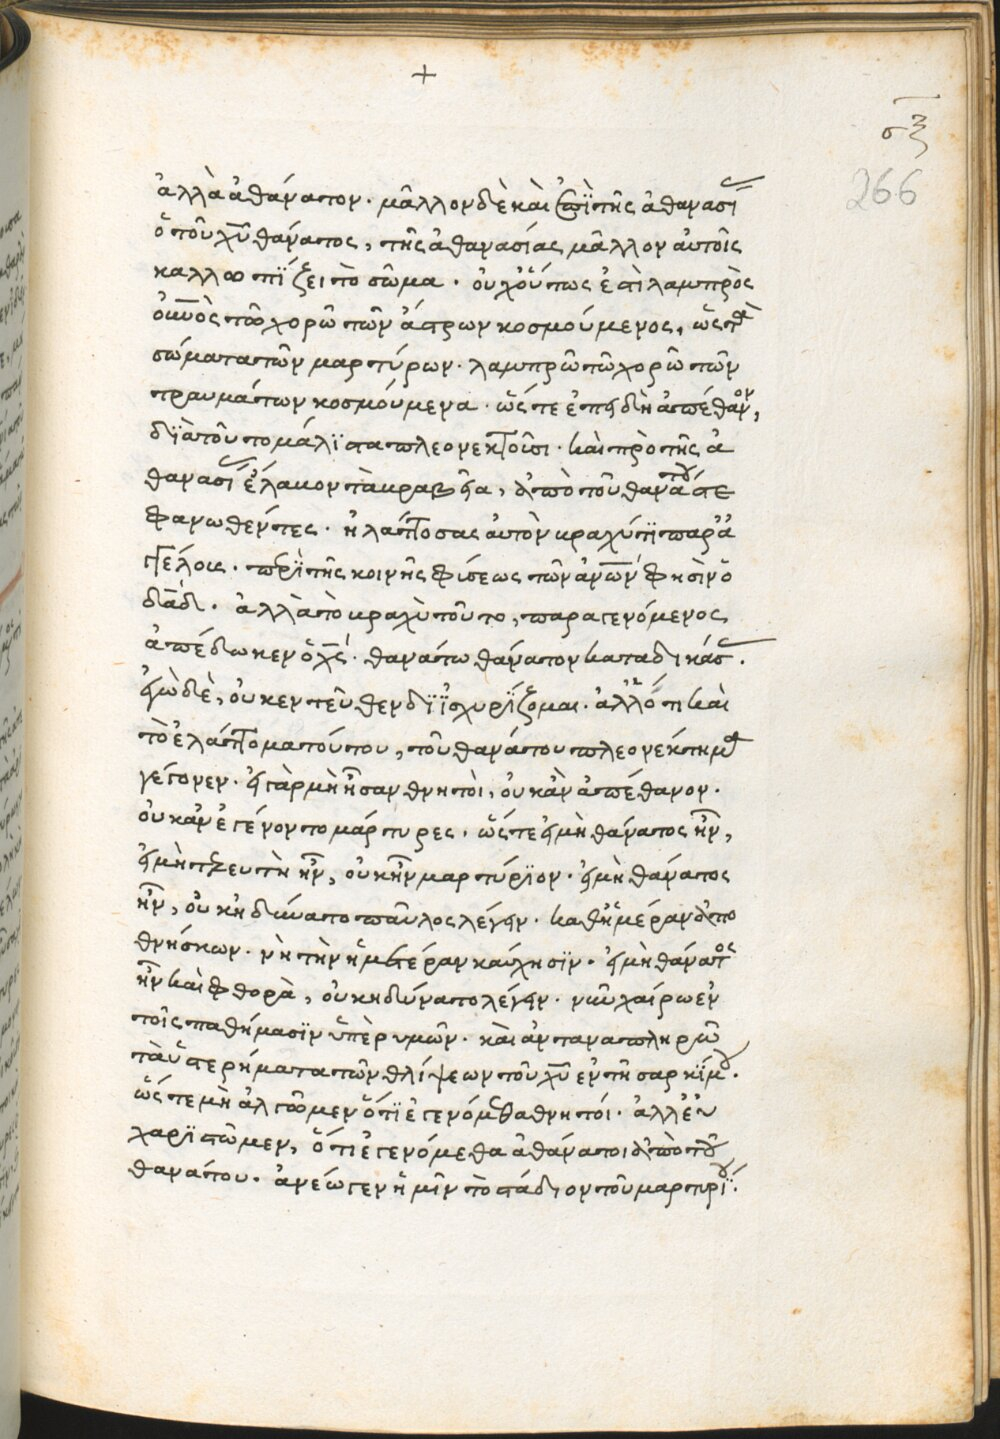 +
σξ
266
ἀλλὰ ἀθάνατον. μᾶλλον δὲ καὶ ἐπὶ τῆς ἀθανασί
ὁ τοῦ χῦ θάνατος, τῆς ἀθανασίας μᾶλλον αὐτοῖς
καλλωπΐζει τὸ σῶμα. οὐχ οὕτως ἐστὶ λαμπρὸς
οὐνὸς τῶ χορῶ τῶν ἄστρων κοσμούμενος, ὥς τὰ
σώματα τῶν μαρτύρων. λαμπρῶ τῶ χορῶ τῶν
τραυμάτων κοσμούμενα. ὥστε ἐπειδὴ ἀπέθανον,
δϊὰ τοῦτο μάλϊστα πλεονεκτοῦσι. καὶ πρὸ τῆς ἀ
θανασί ἔλαβον τὰ βραβεῖα, ἀπὸ τοῦ θανάτου στε
φανωθέντες. ἠλάττοσας αὐτὸν βραχύτϊ παρ' ἀ
γγέλοις. περὶ τῆς κοινῆς φύσεως τῶν ἀνῶν φησὶν ὁ
δᾱδ. ἀλλὰ τὸ βραχὺ τοῦτο, παραγενόμενος
ἀπέδωκεν ὁ χς. θανάτω θάνατον καταδικάσ.
ἐγὼ δὲ, οὐκ ἐντεῦθεν δϊϊσχυρΐζομαι. ἀλλ' ὅτι καὶ
τὸ ἐλάττομα τούτου, τοῦ θανάτου πλεονέκτημα
γέγονεν. εἰ γὰρ μὴ ἦσαν θνητοὶ, οὐκ ἂν ἀπέθανον.
οὐκ ἂν ἐγένοντο μάρτυρες. ὥστε εἰ μὴ θάνατος ἦν,
εἰ μὴ τελευτὴ ἦν, οὐκ ἦν μαρτύρϊον. εἰ μὴ θάνατος
ἦν, οὐκ ἠδύνατο παῦλος λέγειν. καθ' ἡμέραν ἀπο
θνήσκων. νὴ τὴν ἡμετέραν καύχησϊν. εἰ μὴ θάνατος
ἦν καὶ φθορὰ, οὐκ ἠδύνατο λέγειν. νῦν χαίρω ἐν
τοῖς παθήμασϊν ὑπὲρ υμῶν. καὶ ἀνταναπληρῶ
τὰ ὑστερήματα τῶν θλίψεων τοῦ χῦ ἐν τῆ σαρκΐ μου.
ὥστε μὴ ἀλγῶμεν ὅτϊ ἐγενόμεθα θνητοί. ἀλλ' εὐ
χαρϊστῶμεν, ὅτι ἐγενόμεθα ἀθάνατοι ἀπὸ τοῦ
θανάτου. ἀνέωγεν ἡμῖν τὸ στάδιον τοῦ μαρτυρΐου.